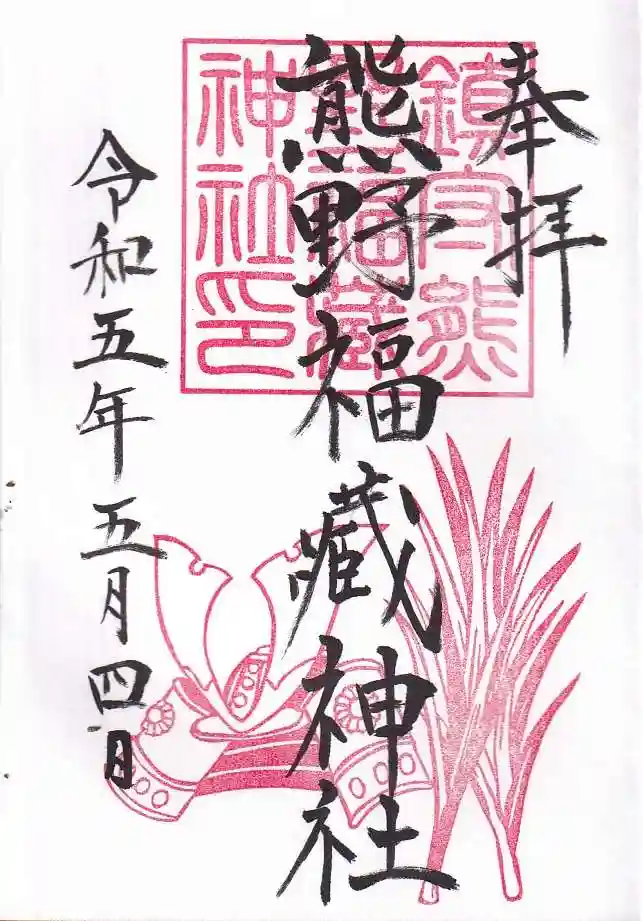 奉拝
熊野福藏神社
令和五年五月四日
鎮守熊
野福藏
神社印